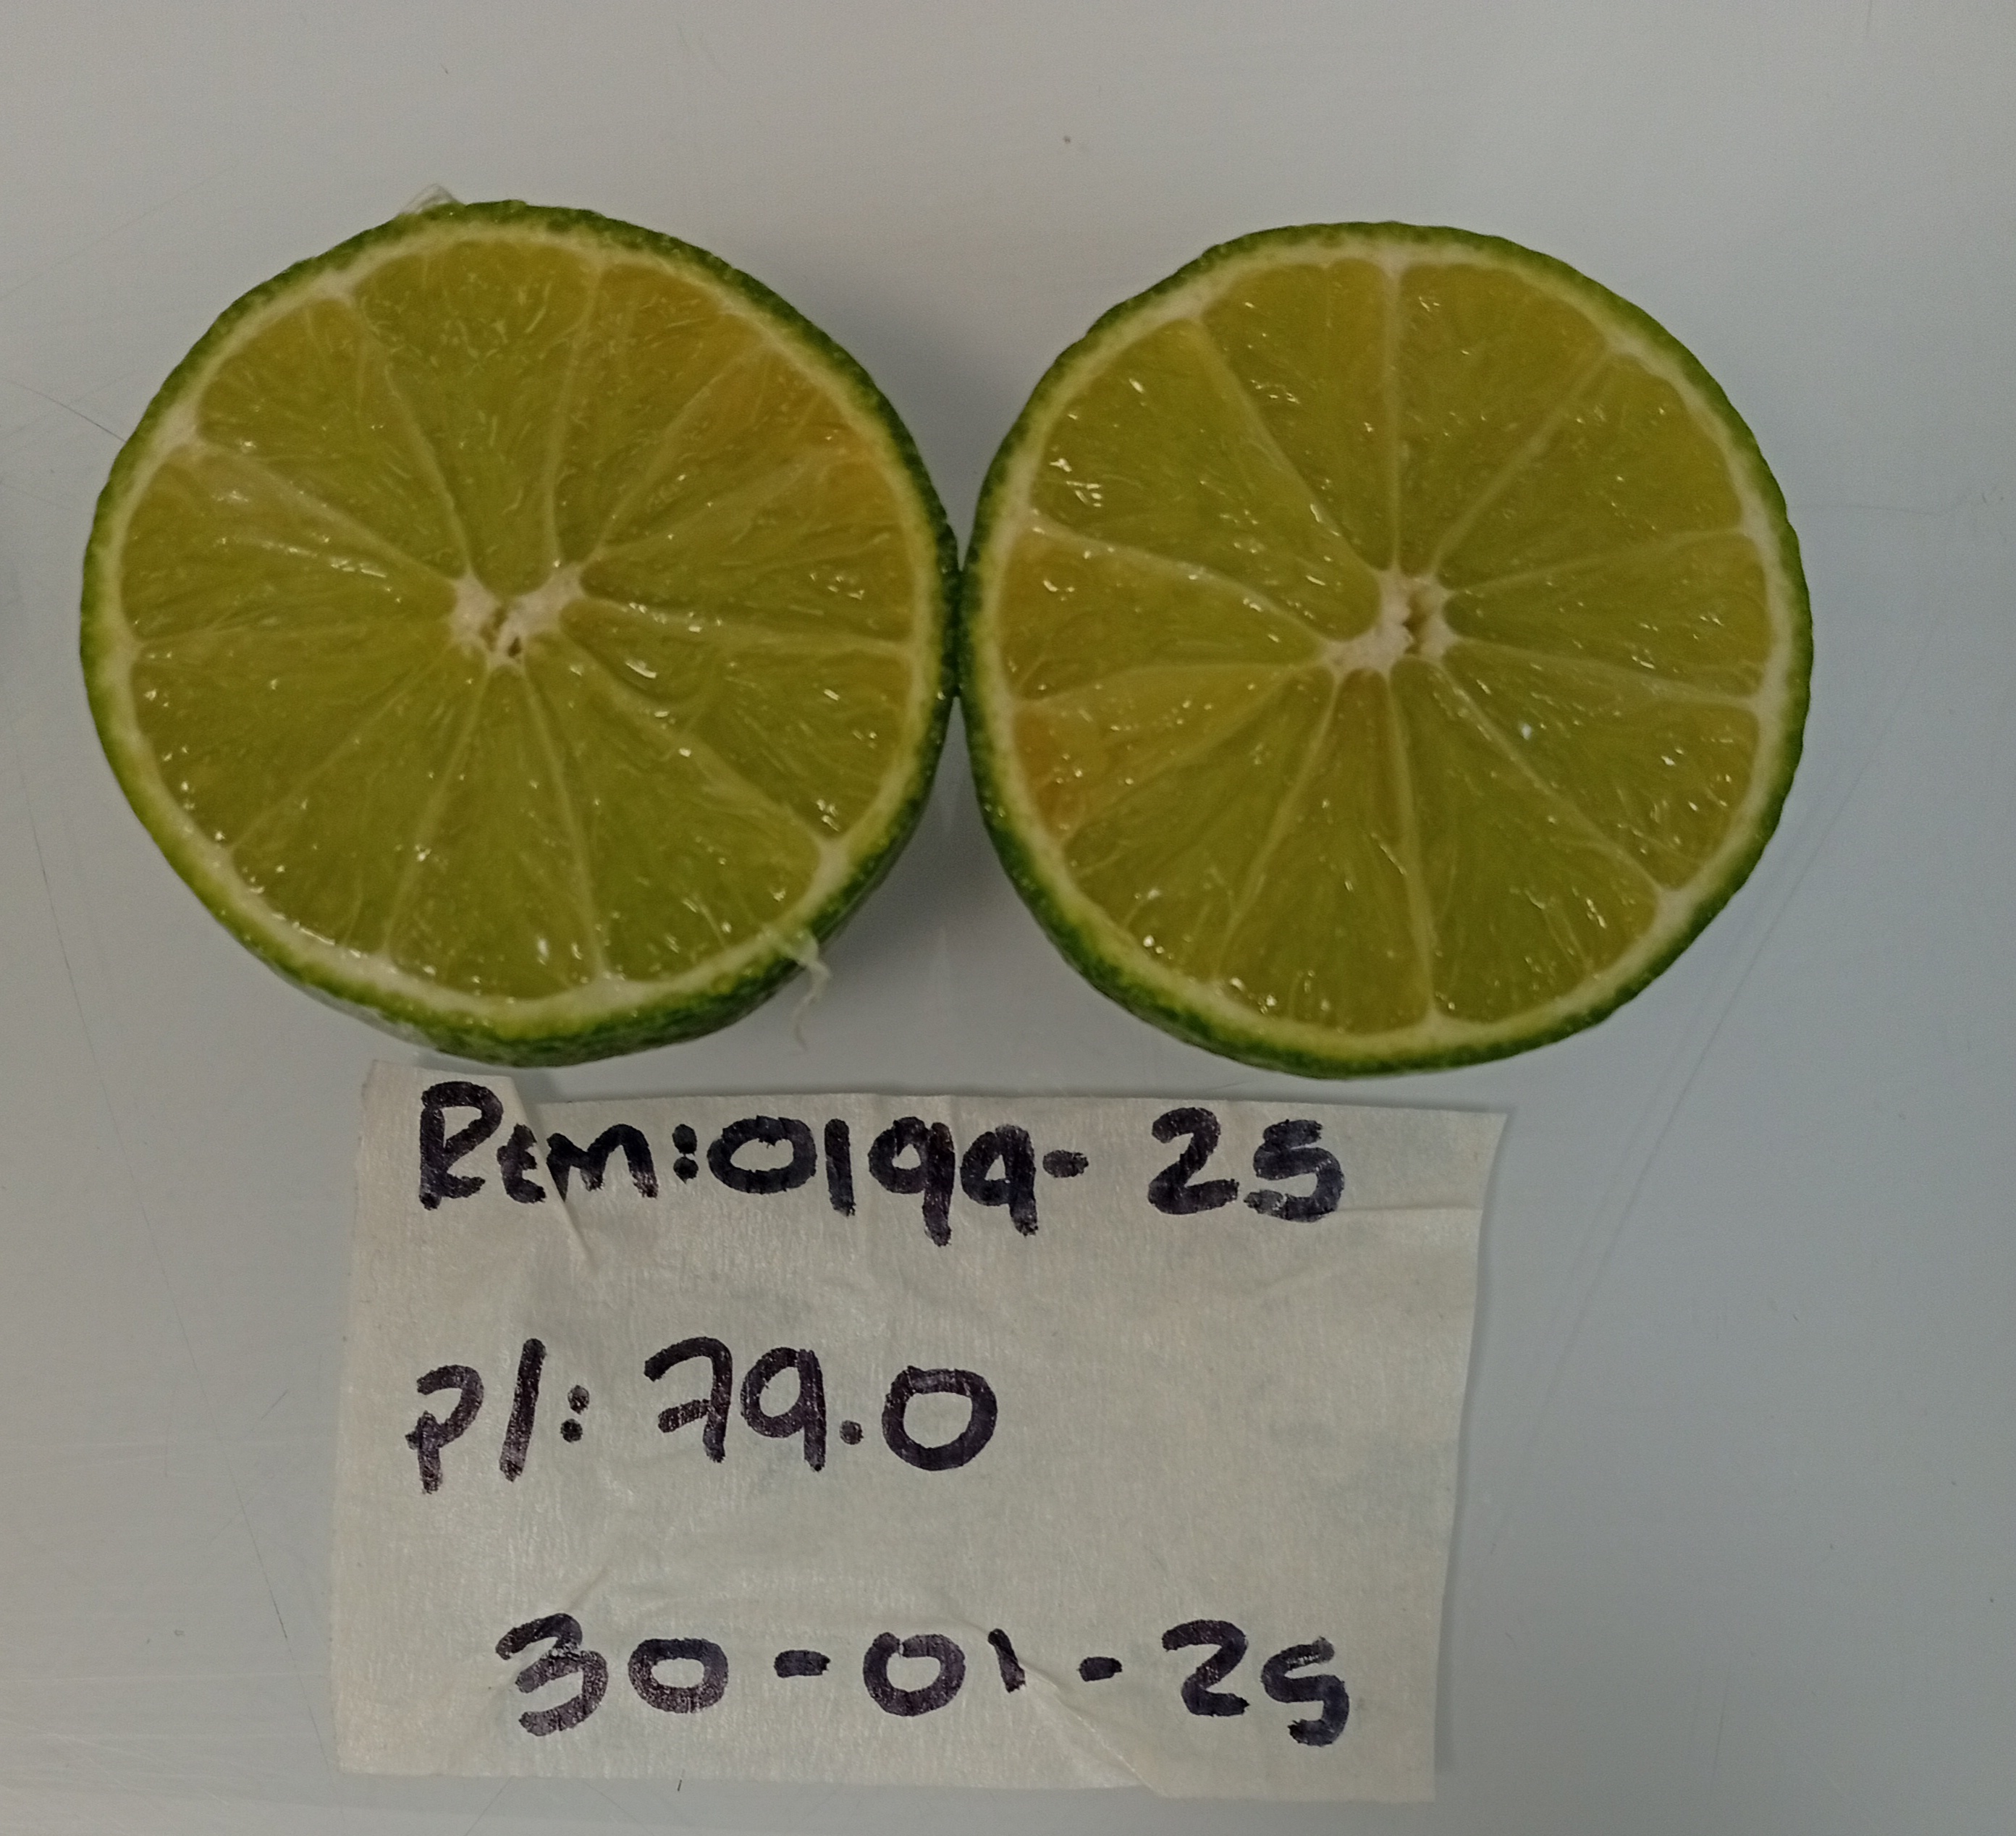 Rem:0199-25
Pl: 79.0
30-01-25